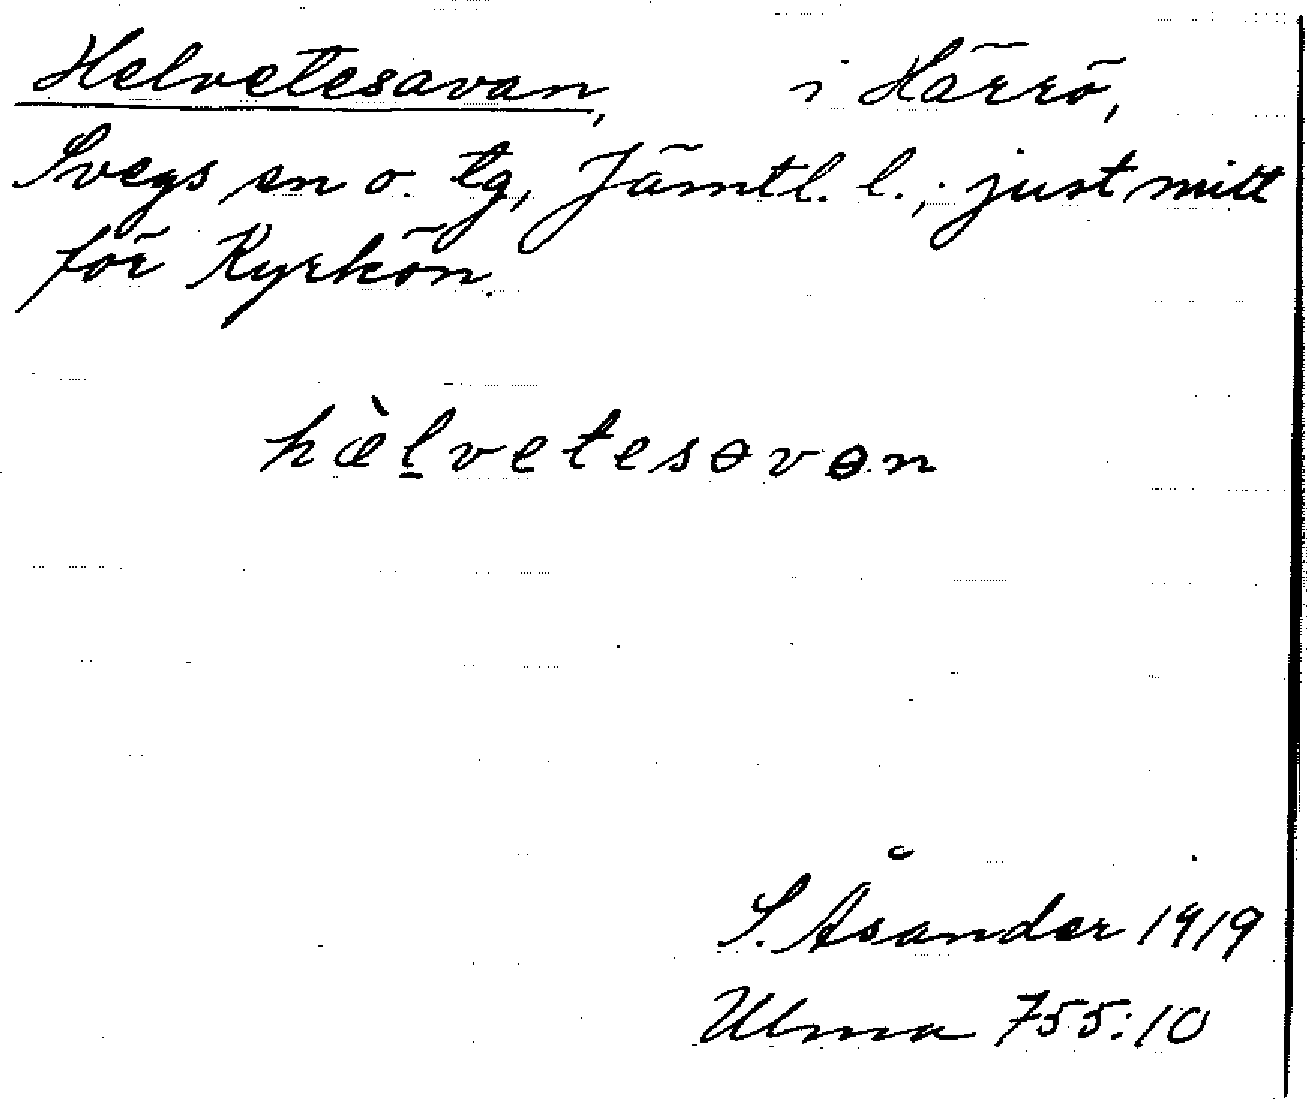 Helvetesavan, i Härrö,
Svegs sn o. tg, Jämtl. l.; just mitt
för Kyrkön.
hæ̀l̠vetesɵvɵn
S. Åsander 1919
Ulma 755:10